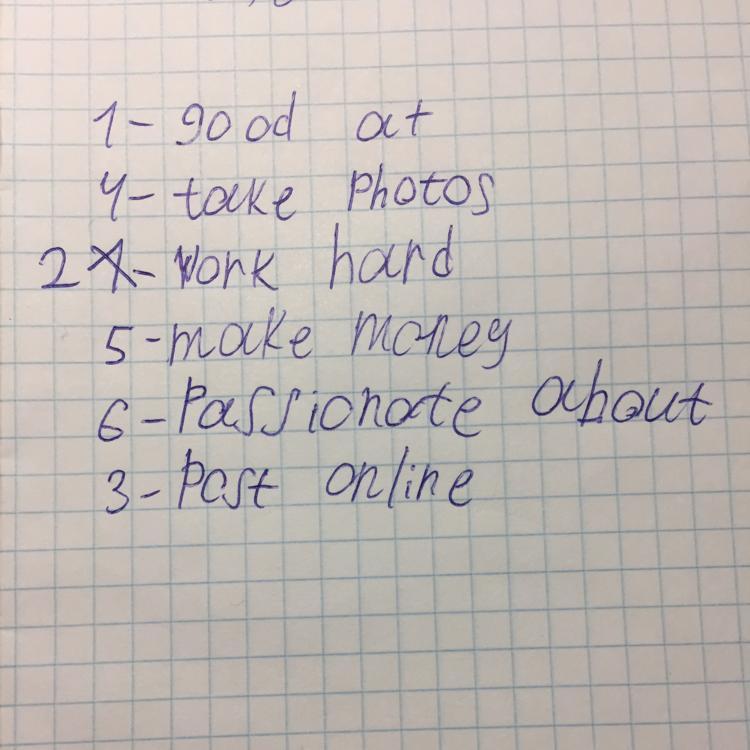 1- good at
4- take photos
2 - work hard
5 - make money
6 - Passionate about
3 - Post online